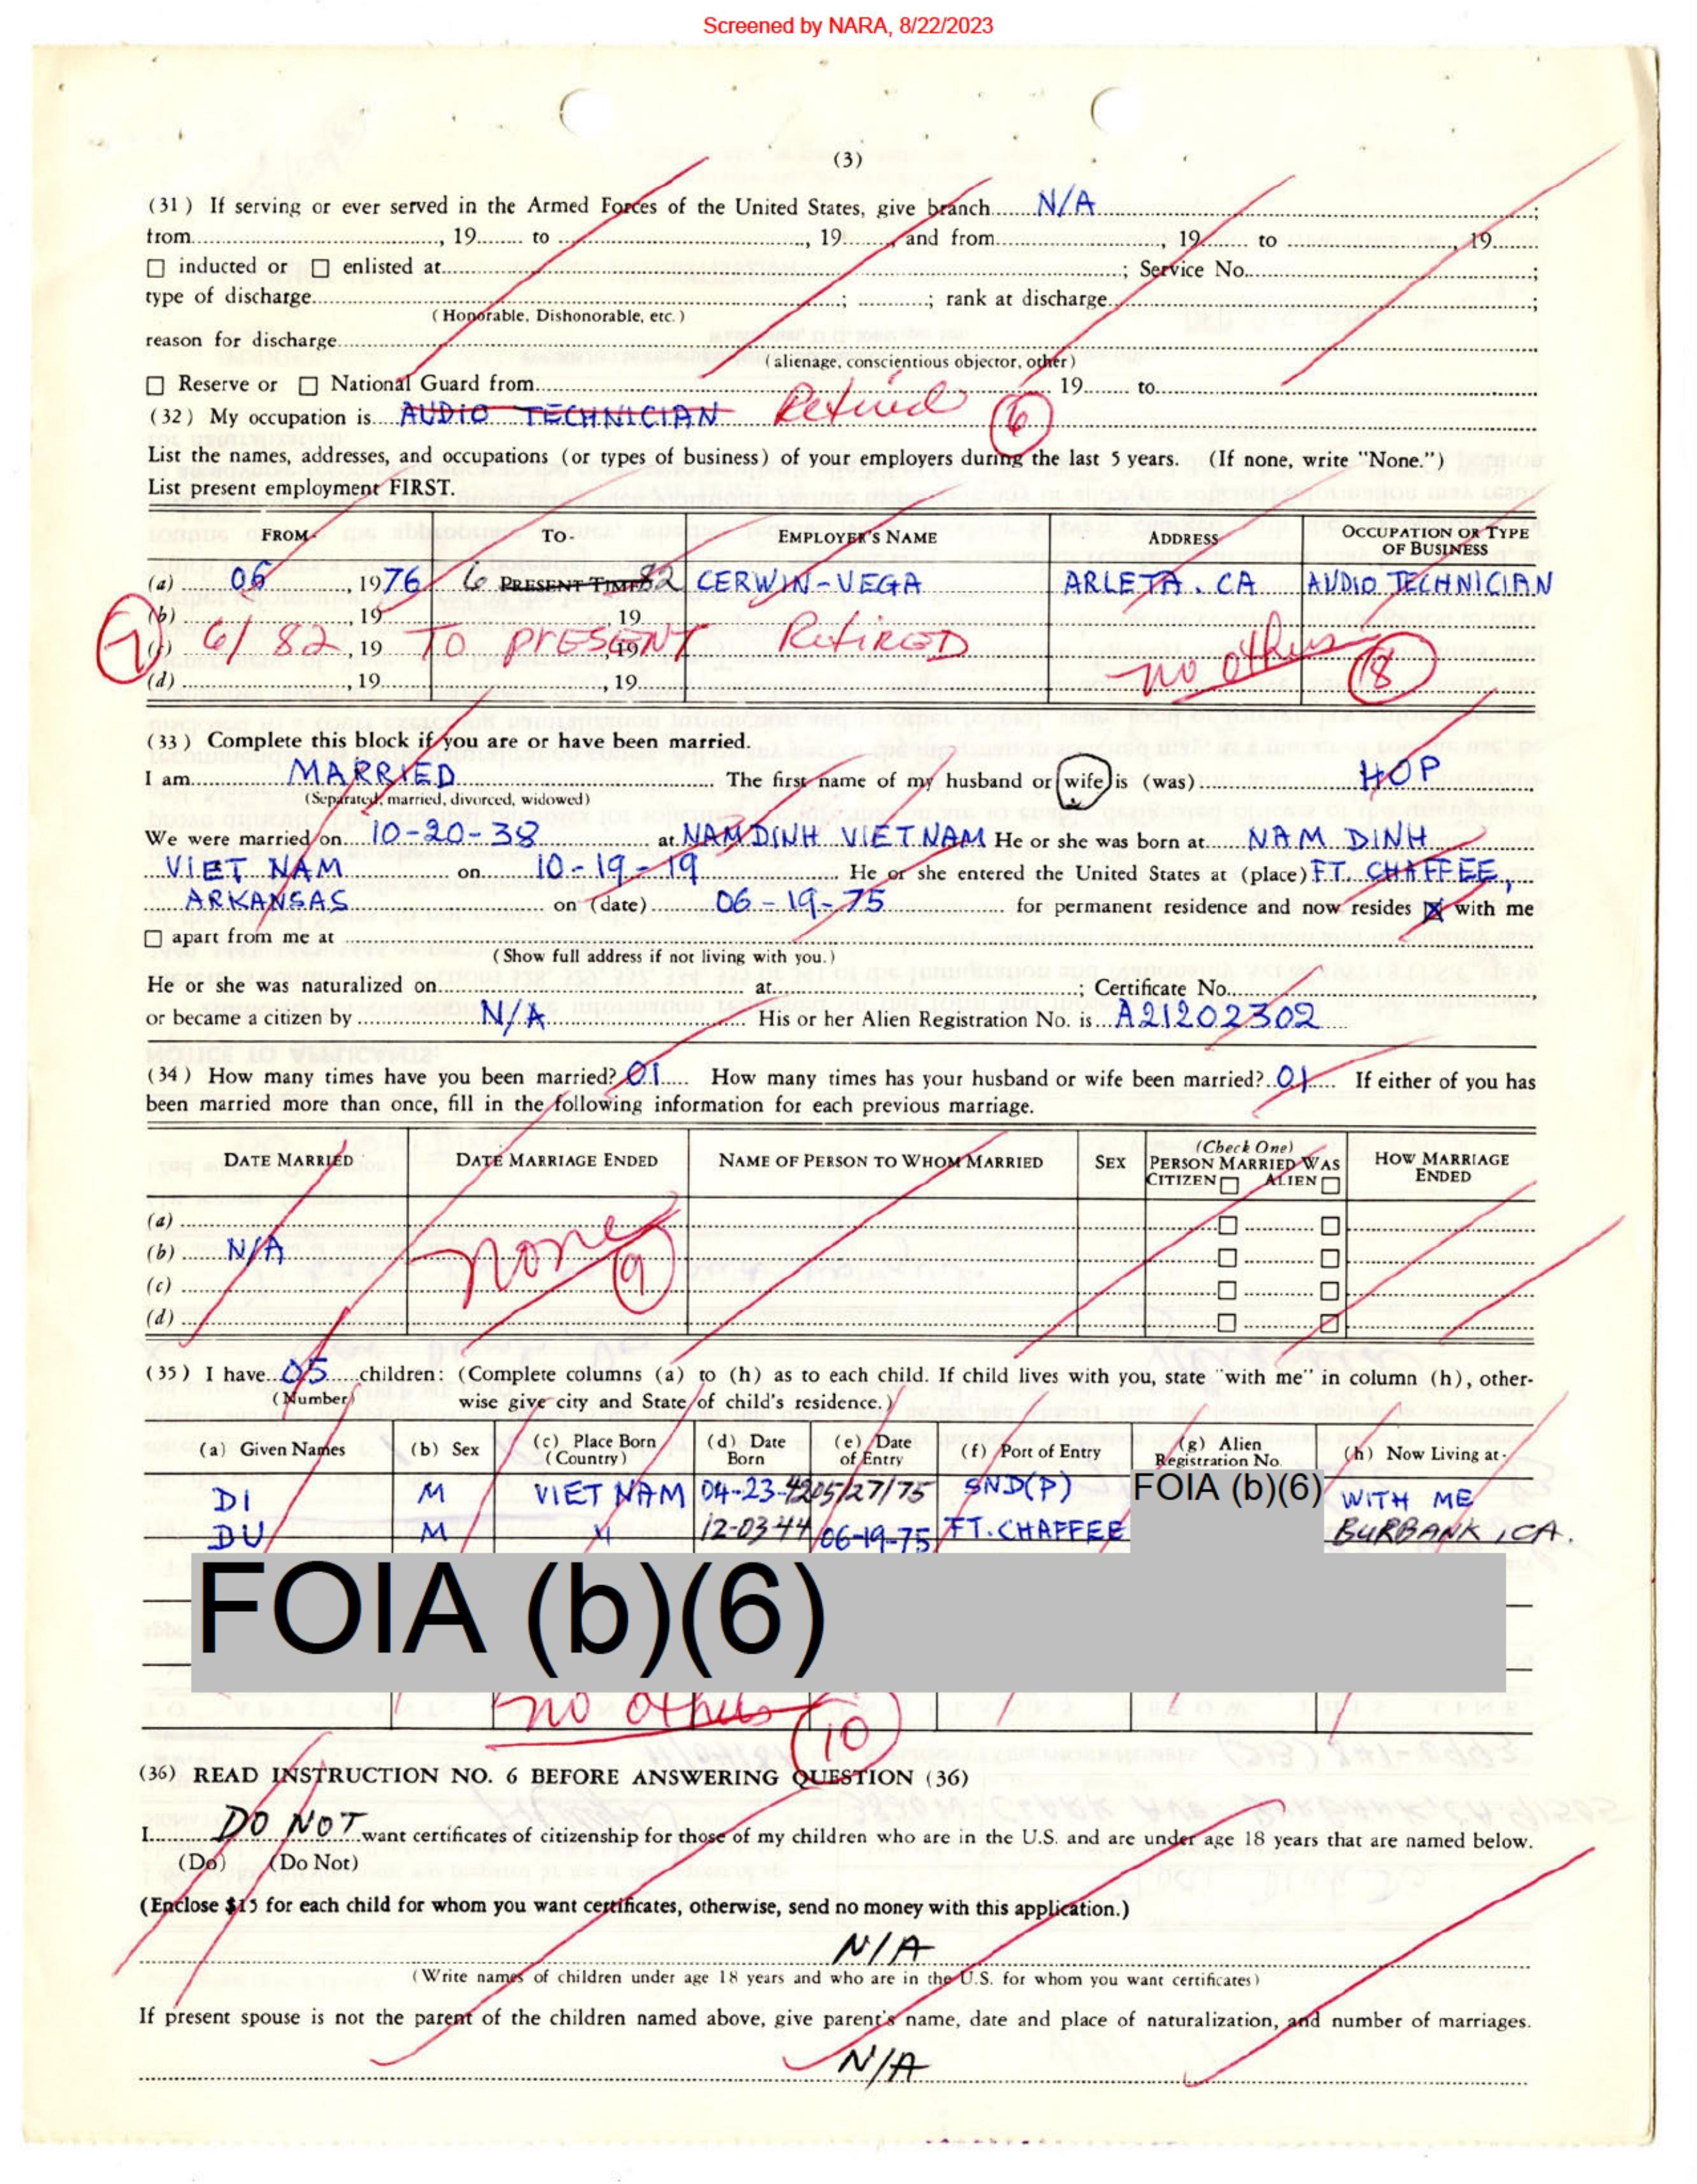 Screened by NARA, 8/22/2023
(3)
(31) If serving or ever served in the Armed Forces of the United States, give branch N/A ;
from , 19 to , 19 , and from , 19 to , 19
☐ inducted or ☐ enlisted at ; Service No. ;
type of discharge ; ; rank at discharge ;
(Honorable, Dishonorable, etc.)
reason for discharge
(alienage, conscientious objector, other)
☐ Reserve or ☐ National Guard from , 19 to
(32) My occupation is AUDIO TECHNICIAN Retired 6
List the names, addresses, and occupations (or types of business) of your employers during the last 5 years. (If none, write "None.")
List present employment FIRST.
FROM- TO- EMPLOYER'S NAME ADDRESS OCCUPATION OR TYPE OF BUSINESS
(a) 06 , 1976 6 PRESENT TIME 82 CERWIN-VEGA ARLETA. CA AUDIO TECHNICIAN
(b) , 19 , 19
7 (c) 6/82 , 19 TO PRESENT , 19 RETIRED no others 8
(d) , 19 , 19
(33) Complete this block if you are or have been married.
I am MARRIED The first name of my husband or wife is (was) HOP
(Separated, married, divorced, widowed)
We were married on 10-20-38 at NAMDINH VIETNAM He or she was born at NAM DINH
VIET NAM on 10-19-19 He or she entered the United States at (place) FT. CHAFFEE,
ARKANSAS on (date) 06-19-75 for permanent residence and now resides ☒ with me
☐ apart from me at
(Show full address if not living with you.)
He or she was naturalized on at ; Certificate No. ,
or became a citizen by N/A His or her Alien Registration No. is A21202302
(34) How many times have you been married? 01 How many times has your husband or wife been married? 01 If either of you has
been married more than once, fill in the following information for each previous marriage.
DATE MARRIED DATE MARRIAGE ENDED NAME OF PERSON TO WHOM MARRIED SEX (Check One) PERSON MARRIED WAS CITIZEN ☐ ALIEN ☐ HOW MARRIAGE ENDED
(a) ☐ ☐
(b) N/A none 9 ☐ ☐
(c) ☐ ☐
(d) ☐ ☐
(35) I have 05 children: (Complete columns (a) to (h) as to each child. If child lives with you, state "with me" in column (h), other-
(Number) wise give city and State of child's residence.)
(a) Given Names (b) Sex (c) Place Born (Country) (d) Date Born (e) Date of Entry (f) Port of Entry (g) Alien Registration No. (h) Now Living at-
DI M VIET NAM 04-23-42 05/27/75 SND(P) FOIA (b)(6) WITH ME
DU M 12-03-44 06-19-75 FT. CHAFFEE BURBANK, CA.
FOIA (b)(6)
no others 10
(36) READ INSTRUCTION NO. 6 BEFORE ANSWERING QUESTION (36)
I DO NOT want certificates of citizenship for those of my children who are in the U.S. and are under age 18 years that are named below.
(Do) (Do Not)
(Enclose $15 for each child for whom you want certificates, otherwise, send no money with this application.)
N/A
(Write names of children under age 18 years and who are in the U.S. for whom you want certificates)
If present spouse is not the parent of the children named above, give parent's name, date and place of naturalization, and number of marriages.
N/A